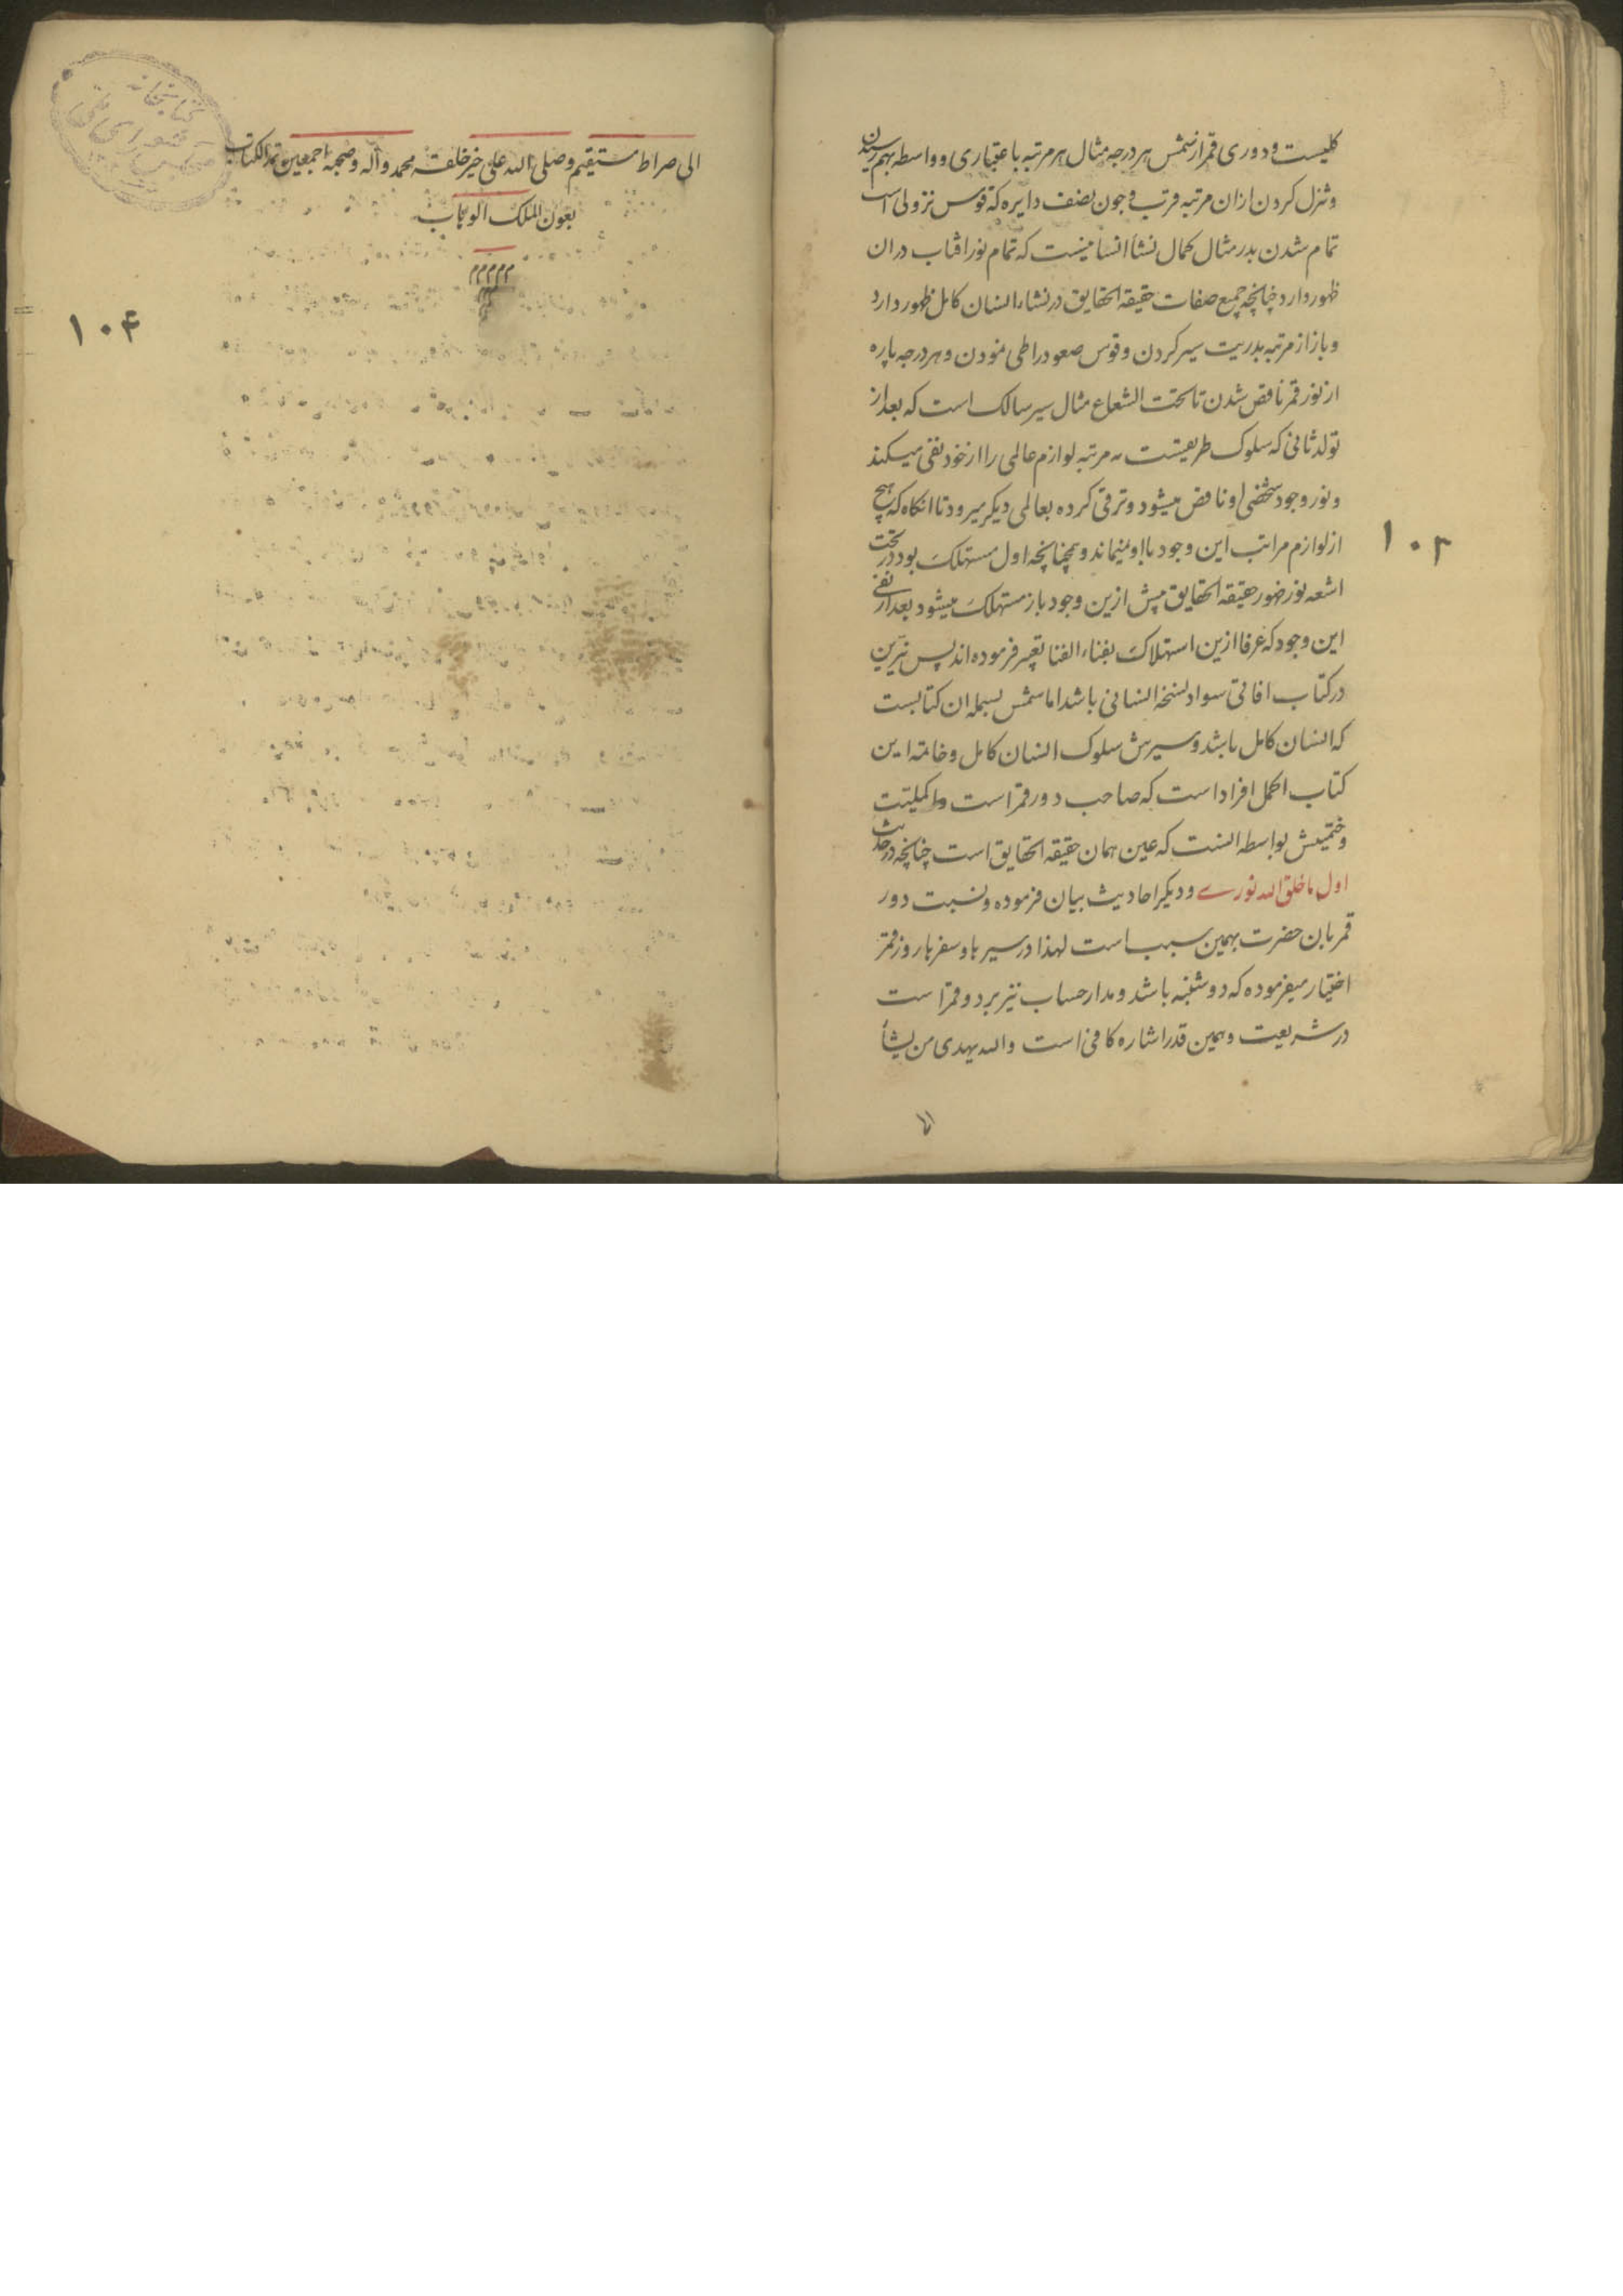 کلیست و دوری قمر از شمس هر درجه مثال هر مرتبه با عتباری و واسطه بهم رسیدن
و تنزل کردن ازان مرتبه قرتب و چون نصف دایره که قوس نزولی است
تمام شدن بدر مثال کمال نشأ انسانیست که تمام نور افتاب دران
ظهور دارد چنانچه جمیع صفات حقیقه الحقایق در نشاء انسان کامل ظهور دارد
و باز از مرتبه بدریت سیر کردن و قوس صعود را طی نمودن و هر درجه پاره
از نور قمر ناقص شدن تا تحت الشعاع مثال سیر سالک است که بعد از
تولد ثانی که سلوک طریقتست مرتبه لوازم عالمی را از خود نفی میکند
و نور وجود شخصی او ناقص میشود و ترقی کرده بعالمی دیکر میرود تا انکاه که هیچ
از لوازم مراتب این وجود با او نمیماند و همچنانچه اول مستهلک بود در تحت
اشعه نور ظهور حقیقه الحقایق پیش ازین وجود باز مستهلک میشود بعد از نفی
این وجود که عرفا ازین استهلاک بفناء الفنا تعبیر فرموده اند پس نیرین
در کتاب افاقی سواد نسخه انسانی باشد اما شمس بسمله ان کتابست
که انسان کامل باشد و سیرش سلوک انسان کامل و خاتمه این
کتاب اکمل افراد است که صاحب دور قمر است و اکملیت
و ختمیتش بواسطه انست که عین همان حقیقه الحقایق است چنانچه در حدیث
اول ما خلق الله نوری و دیکر احادیث بیان فرموده و نسبت دور
قمر بان حضرت بهمین سبب است لهذا در سیرها و سفرها روز قمر
اختیار میفرموده که دوشنبه باشد و مدار حساب نیز بر دو قمر است
در شریعت و همین قدر اشاره کافی است والله یهدی من یشأ
الی
۱۰۳
الی صراط مستقیم و صلی الله علی خیر خلقه محمد و آله و صحبه اجمعین تمه الکتاب
بعون الملک الوهاب
ممممم
۱۰۴
کتابخانه
مجلس شورای ملی